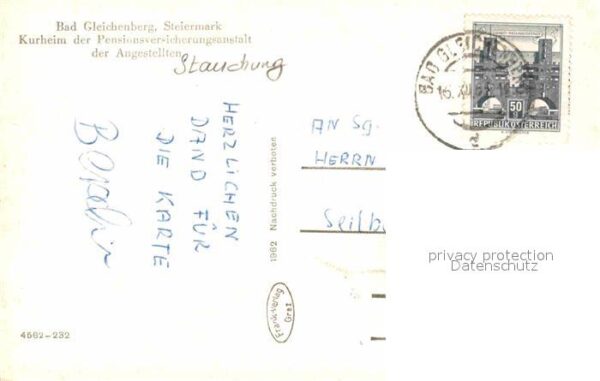 Bad Gleichenberg, Steiermark
Kurheim der Pensionsversicherungsanstalt
der Angestellten
Stauchung
HERZLICHEN
DAND FÜR
DIE KARTE
1962 Nachdruck verboten
Frankverlag
Graz
4562-232
AN Sg.
HERRN
Seilb
BAD GLEICH
16.XII.
a
50
REPUBLIK ÖSTERREICH
privacy protection
Datenschutz